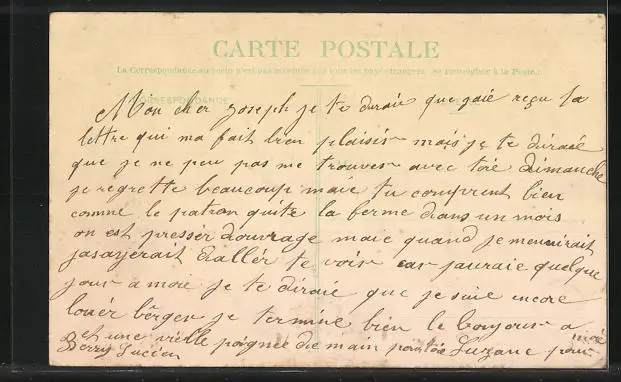 CARTE POSTALE
La Correspondance au recto n'est pas acceptée par tous les pays étrangers. Se renseigner à la Poste.
CORRESPONDANCE
Mon cher Joseph je te diraie que gaié reçu ta
lettre qui ma fait bien plaisir mais je te diraié
que je ne peu pas me trouver avec toié Dimanche
je regrette beaucoup maie tu comprent bien
comme le patron quite la ferme dans un mois
on est presser douvrage maie quand je menuirait
jasayerait dallér te voir car jauraie quelque
jour a moié je te diraié que je suie encore
louér bérger je termine bien le bonjour a
et une viélle poignée de main pour toié Suzane pour
Berry Lucien